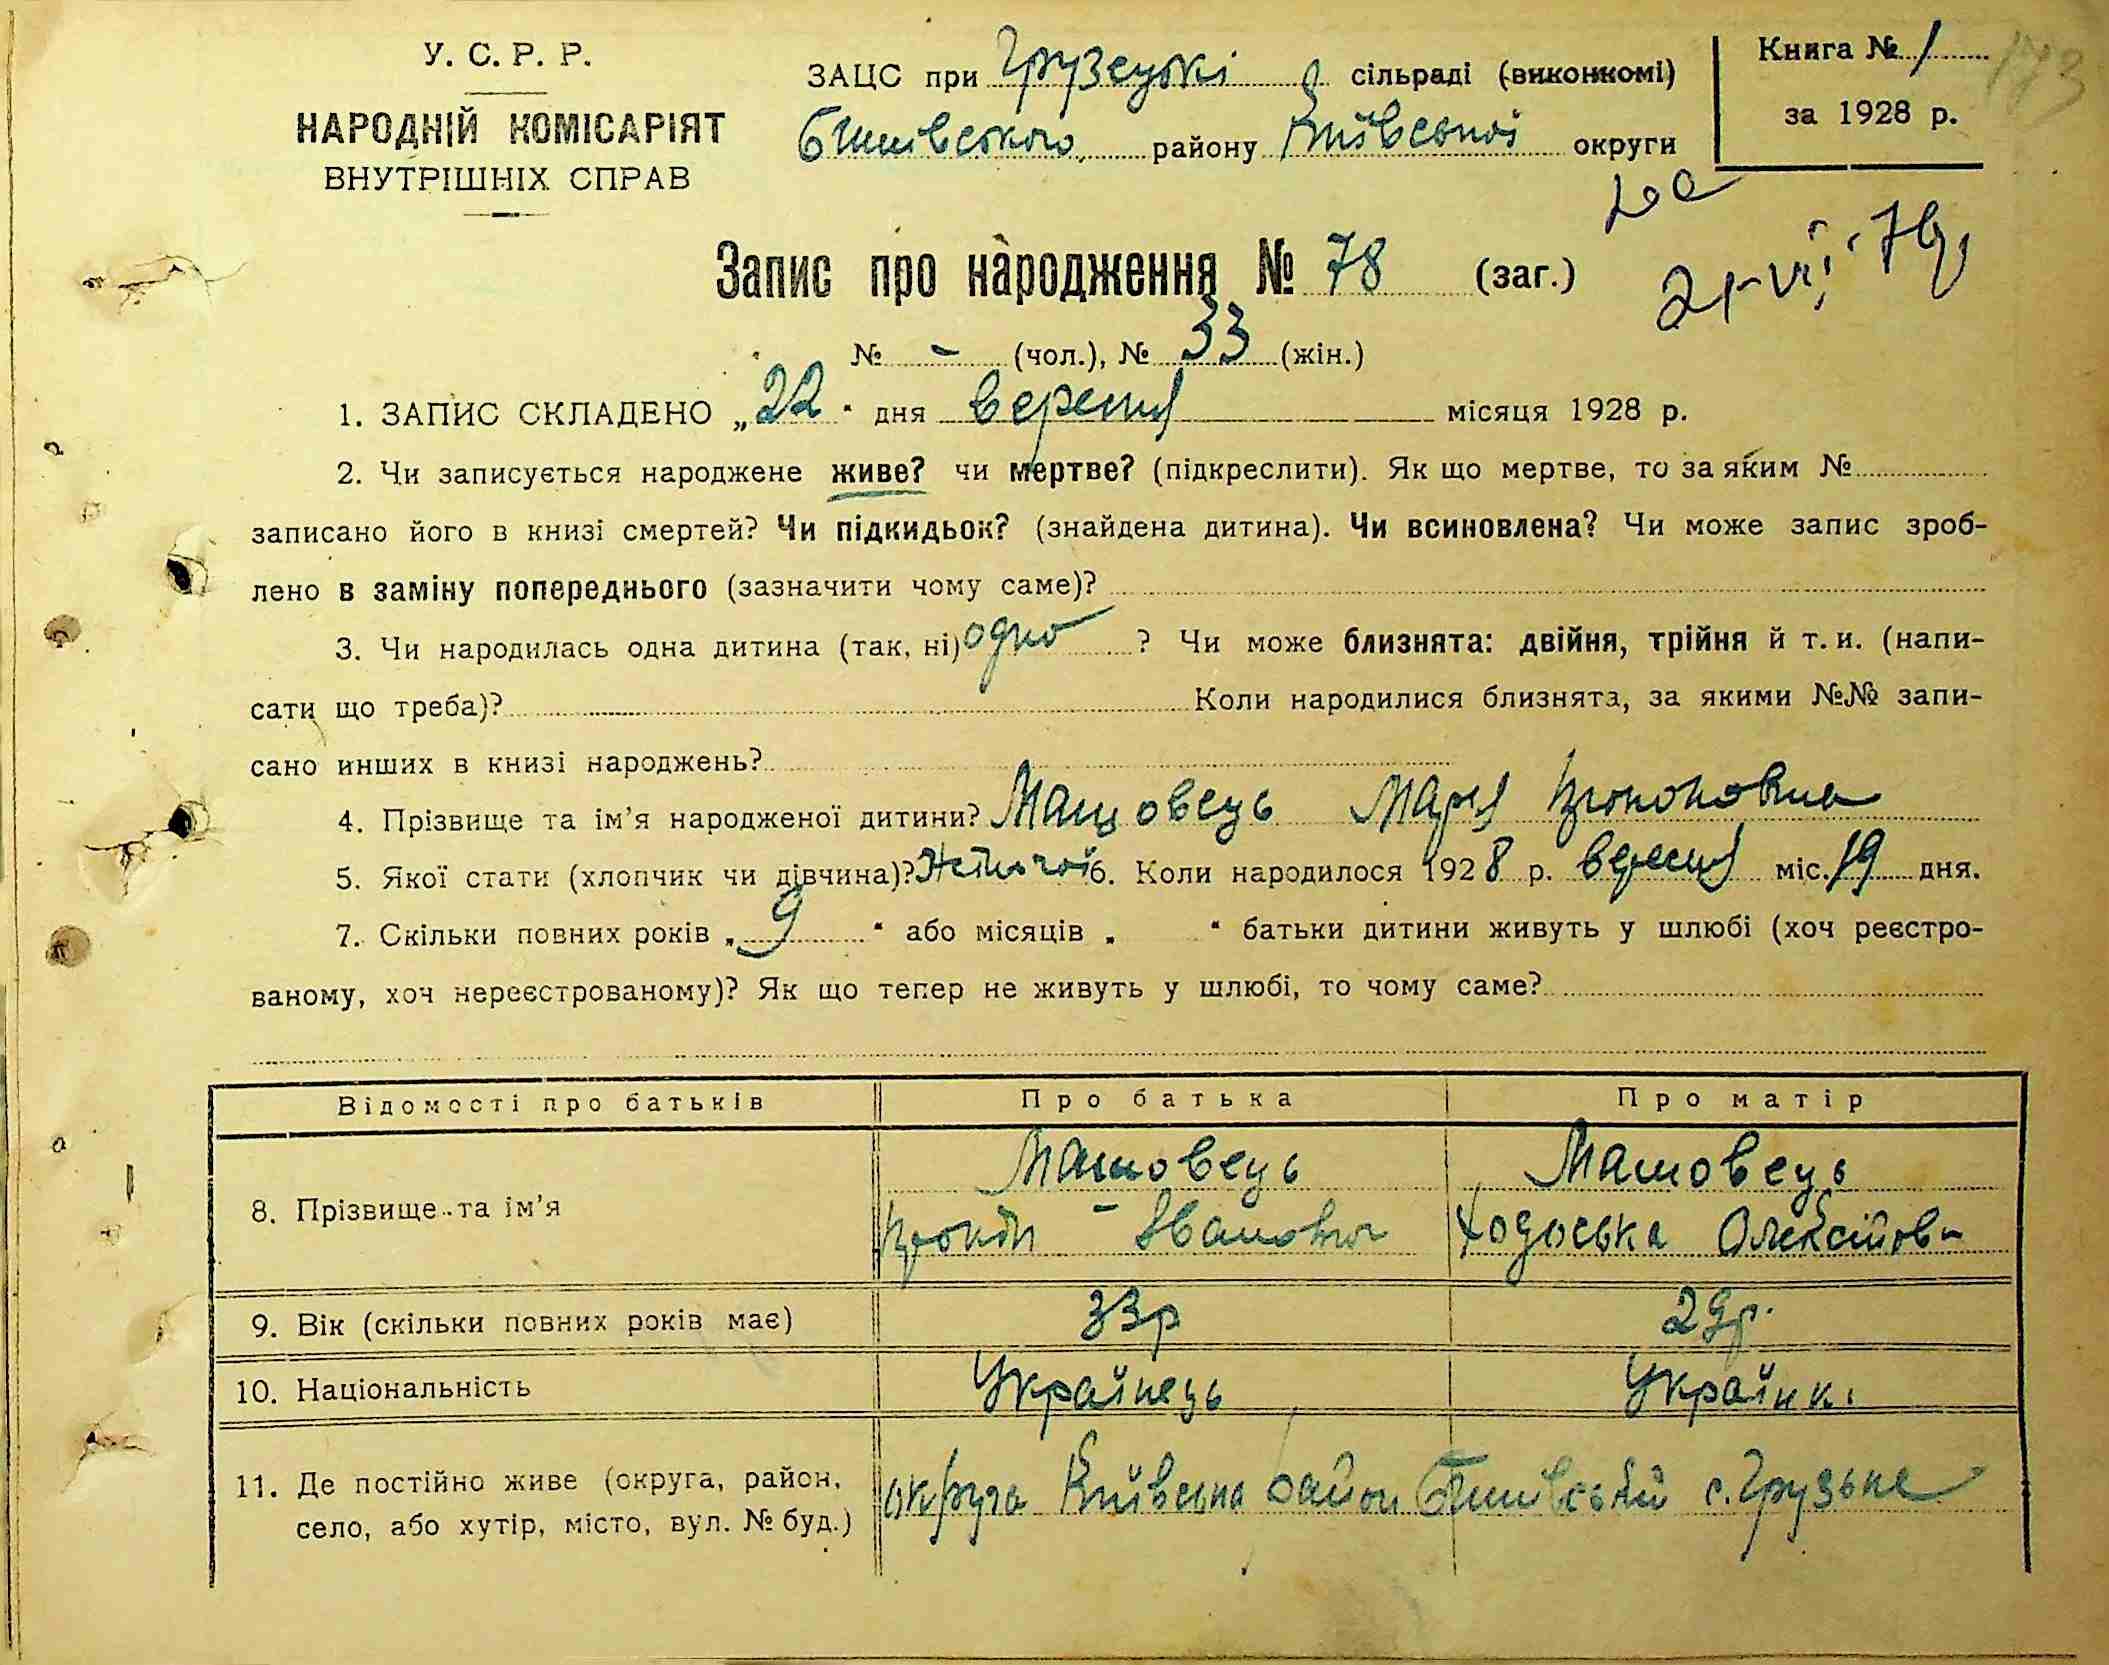 У. С. Р. Р.
НАРОДНІЙ КОМІСАРІЯТ
ВНУТРІШНІХ СПРАВ
ЗАЦС при Грузецькі сільраді (виконкомі)
Бишівського району Київської округи
Книга № 1
за 1928 р.
173
21-VII-76
Запис про народження № 78 (заг.)
№ - (чол.), № 33 (жін.)
1. ЗАПИС СКЛАДЕНО „22“ дня вересня місяця 1928 р.
2. Чи записується народжене живе? чи мертве? (підкреслити). Як що мертве, то за яким №
записано його в книзі смертей? Чи підкидьок? (знайдена дитина). Чи всиновлена? Чи може запис зроб-
лено в заміну попереднього (зазначити чому саме)?
3. Чи народилась одна дитина (так, ні) одно ? Чи може близнята: двійня, трійня й т. и. (напи-
сати що треба)? Коли народилися близнята, за якими №№ запи-
сано инших в книзі народжень?
4. Прізвище та ім’я народженої дитини? Машовець Марія
5. Якої стати (хлопчик чи дівчина)? Жіночої 6. Коли народилося 1928 р. вересня міс. 19 дня.
7. Скільки повних років „9“ або місяців „ “ батьки дитини живуть у шлюбі (хоч реєстро-
ваному, хоч нереєстрованому)? Як що тепер не живуть у шлюбі, то чому саме?
Відомості про батьків Про батька Про матір
8. Прізвище та ім’я Машовець Машовець
Іванович Ходоська Олексіїов-
9. Вік (скільки повних років має) 33р 29р.
10. Національність Українець Українка
11. Де постійно живе (округа, район, округа Київська район Бишівський с. Грузьке
село, або хутір, місто, вул. № буд.)